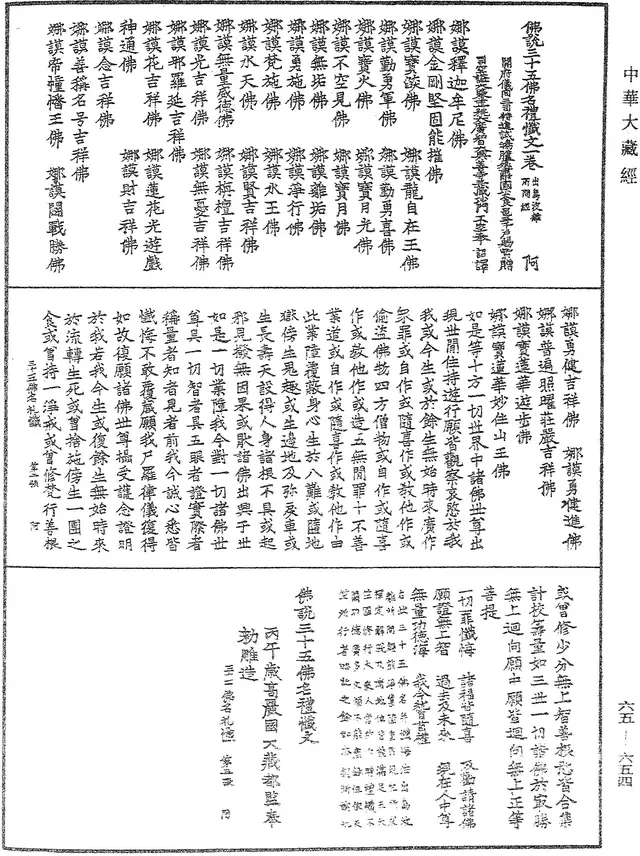 中華大藏經
佛說三十五佛名禮懺文一卷 出烏波離所問經 阿
開府儀同三司特進試鴻臚卿肅國公食邑三千戶賜紫贈
司空謚大鑒正號大廣智大興善寺三藏沙門不空奉 詔譯
娜謨釋迦牟尼佛
娜謨金剛堅固能摧佛
娜謨寶焰佛 娜謨龍自在王佛
娜謨勤勇軍佛 娜謨勤勇喜佛
娜謨寶火佛 娜謨寶月光佛
娜謨不空見佛 娜謨寶月佛
娜謨無垢佛 娜謨離垢佛
娜謨勇施佛 娜謨淨行佛
娜謨梵施佛 娜謨水王佛
娜謨水天佛 娜謨賢吉祥佛
娜謨無量威德佛 娜謨栴檀吉祥佛
娜謨光吉祥佛 娜謨無憂吉祥佛
娜謨那羅延吉祥佛
娜謨花吉祥佛 娜謨蓮花光遊戲
神通佛 娜謨財吉祥佛
娜謨念吉祥佛
娜謨善稱名号吉祥佛
娜謨帝幢幡王佛 娜謨鬪戰勝佛
娜謨勇健吉祥佛 娜謨勇健進佛
娜謨普遍照曜莊嚴吉祥佛
娜謨寶蓮華遊步佛
娜謨寶蓮華妙住山王佛
如是等十方一切世界中諸佛世尊出
現世間住持遊行願皆觀察哀愍於我
我或今生或於餘生無始時來廣作
衆罪或自作或隨喜作或教他作或
偷盜佛物四方僧物或自作或隨喜
作或教他作或造五無間罪十不善
業道或自作或隨喜作或教他作由
此業障覆蔽身心生於八難或墮地
獄傍生鬼趣或生邊地及弥戾車或
生長壽天設得人身諸根不具或起
邪見撥無因果或猒諸佛出興于世
如是一切業障我今對一切諸佛世
尊具一切智者具五眼者證實際者
稱量者知者見者前我今誠心悉皆
懺悔不敢覆藏願我尸羅律儀復得
如故復願諸佛世尊攝受護念證明
於我若我今生或復餘生無始時來
於流轉生死或曾捨施傍生一團之
食或曾持一淨戒或曾修梵行善根
三十五佛名礼懺 第二張 阿
或曾修少分無上智善根悉皆合集
計校籌量如三世一切諸佛於最勝
無上迴向願中願皆迴向無上正等
菩提
一切罪懺悔 諸福皆隨喜 及勸請諸佛
願證無上智 過去及未來 現在人中尊
無量功德海 我今稽首禮
右此三十五佛名并懺悔法出烏波
離所問經能淨業障重罪現生所求
禪定解脫及諸地位皆能滿足五天
竺國修行大乘人常於六時禮懺不
佛說三十五佛名禮懺文
丙午歲高麗國大藏都監奉
勅雕造
三十五佛名礼懺 第三張 阿
六五－六五四